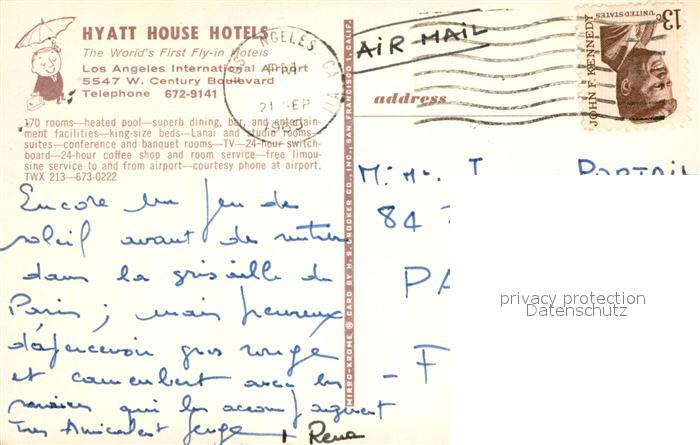 HYATT HOUSE HOTELS
The World's First Fly-in Hotels
Los Angeles International Airport
5547 W. Century Boulevard
Telephone 672-9141
170 rooms—heated pool—superb dining, bar, and entertain-
ment facilities—king-size beds—Lanai and studio rooms—
suites—conference and banquet rooms—TV—24-hour switch-
board—24-hour coffee shop and room service—free limou-
sine service to and from airport—courtesy phone at airport.
TWX 213—673-0222
LOS ANGELES, CA
PM
21 SEP
1969
AIR MAIL
13c
UNITED STATES
JOHN F. KENNEDY
address
MIRRO-KROME ® CARD BY H. S. CROCKER CO., INC., SAN FRANCISCO 1, CALIF.
Encore un peu de
soleil avant de rentrer
dans la grisaille de
Paris ; mais heureux
d'apercevoir gros rouge
et camembert avec les
qui les accompagnent
Très Amicalement
Rene
84
PA
- F
privacy protection
Datenschutz